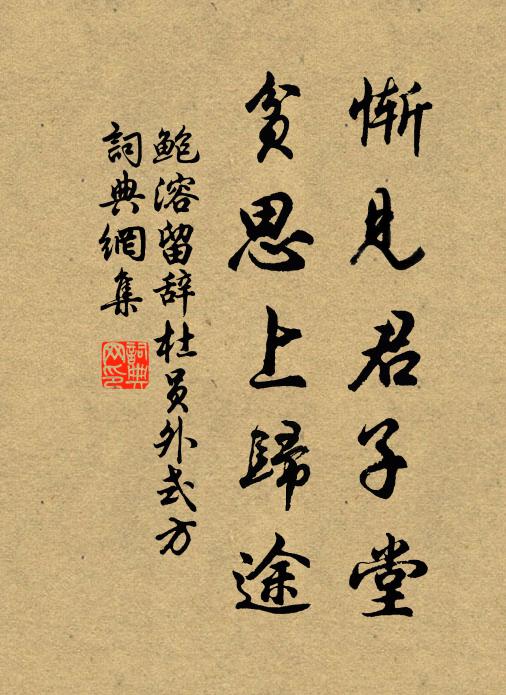 慚見君子堂
貧思上歸途
鮑溶留辞杜员外式方
詞典網集
詞典網印